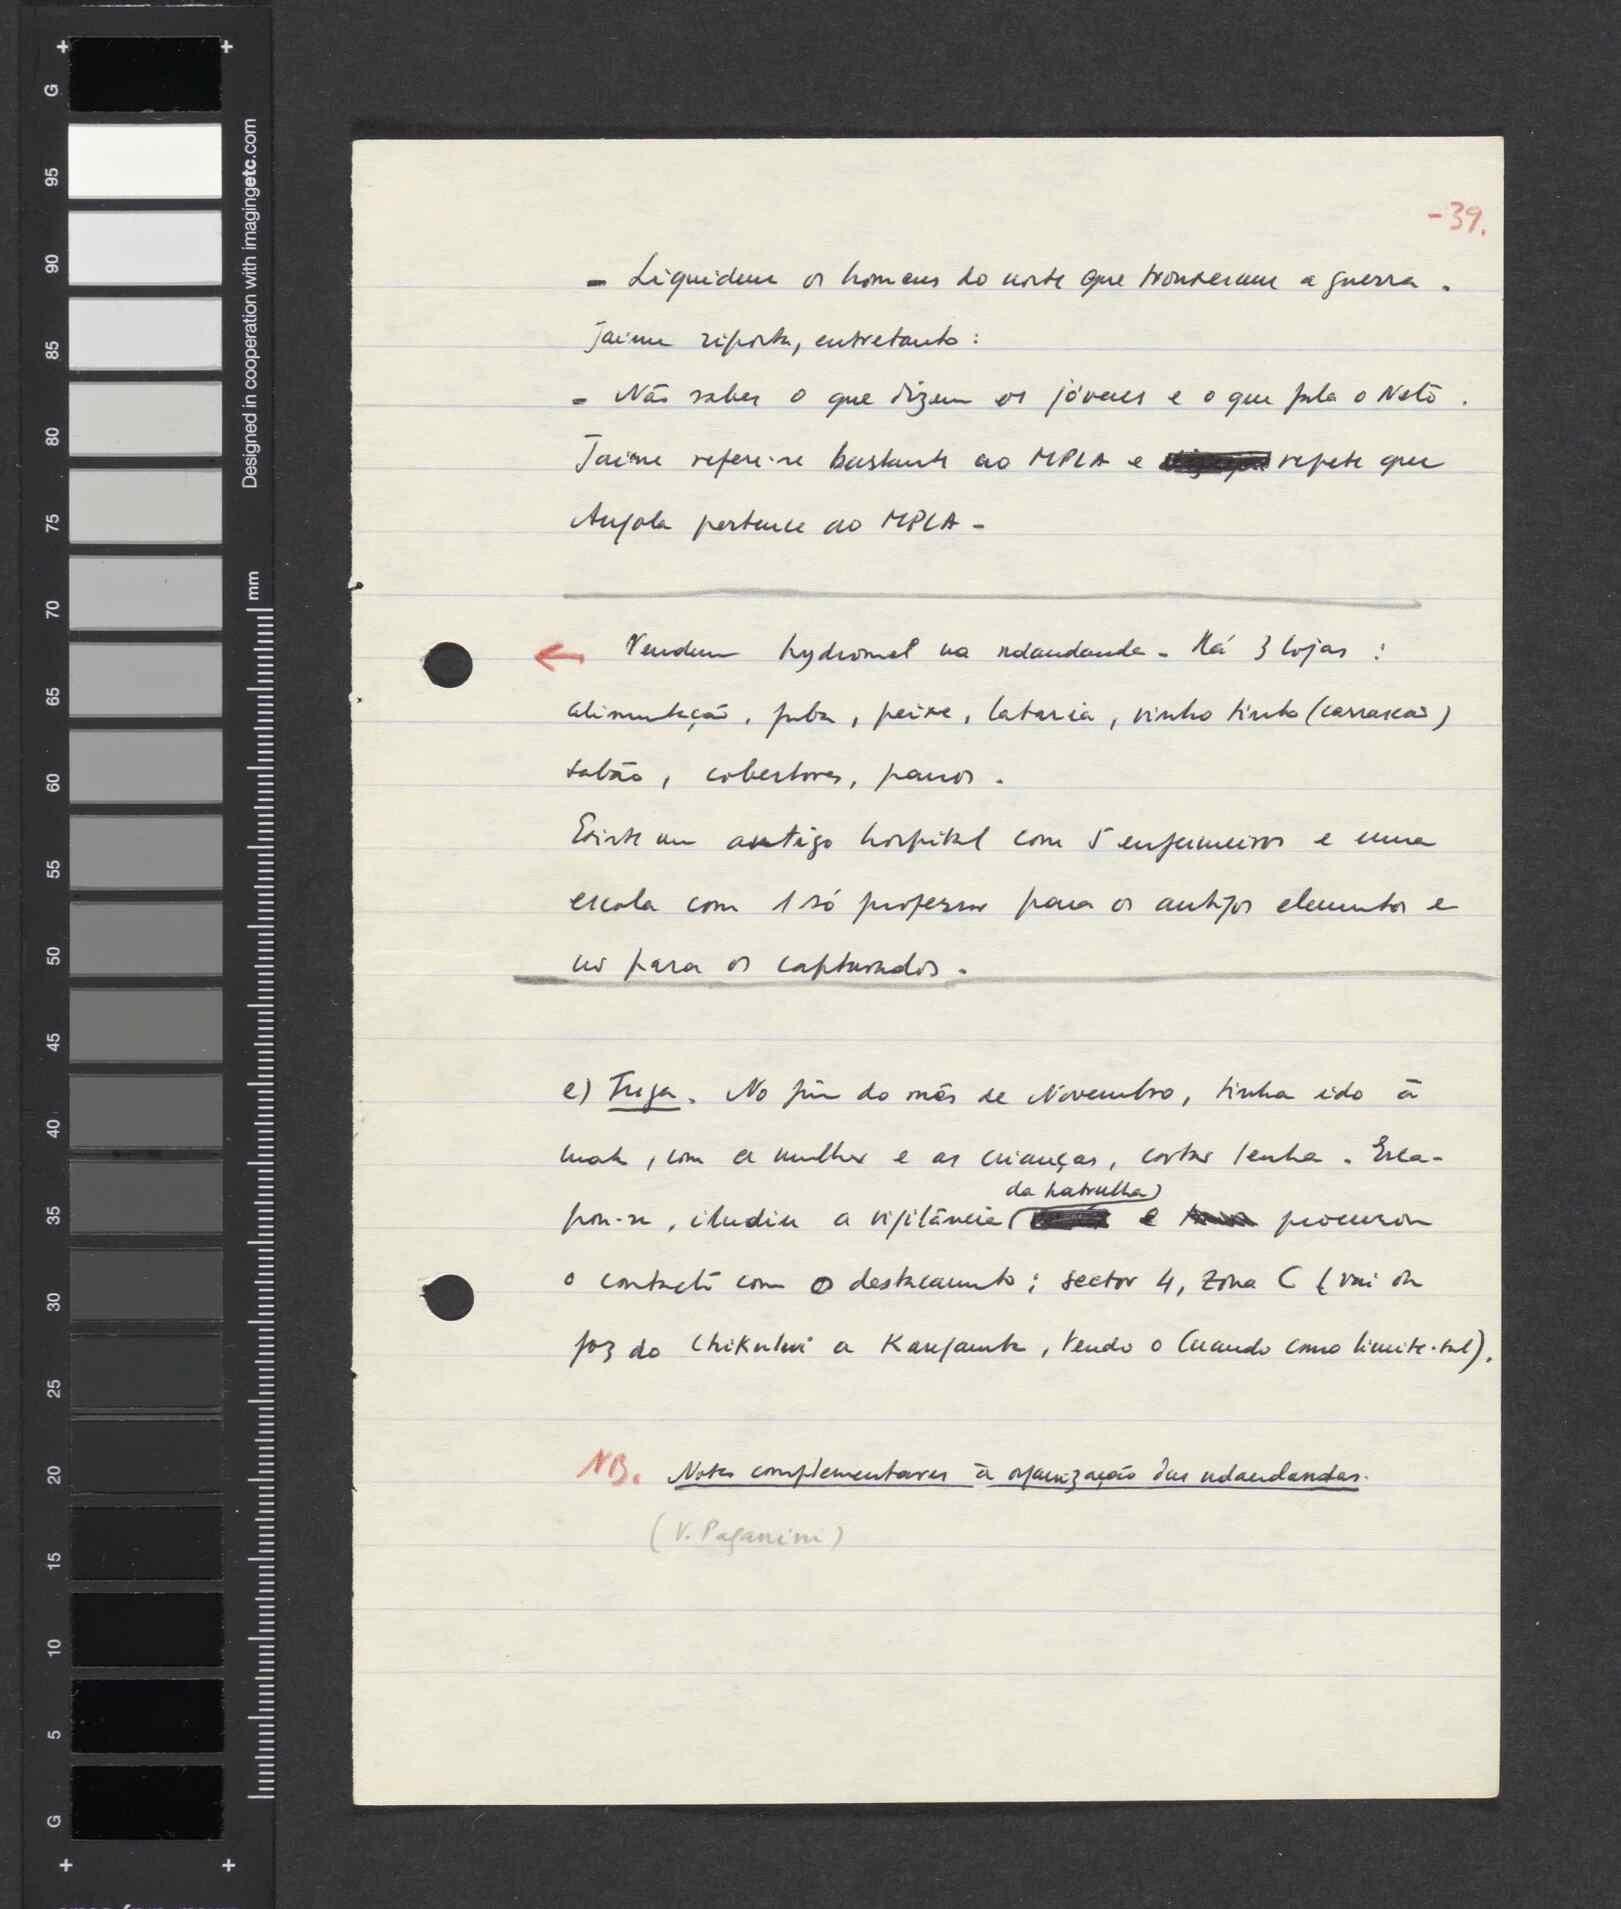 -39.
- Liquidem os homens do norte que trouxeram a guerra.
Jaime riposta, entretanto:
- Não sabes o que dizem os jóvens e o que fala o Neto.
Jaime refere-se bastante ao MPLA e repete que
Angola pertence ao MPLA -
← Vendem hydromel na ndandanda - Há 3 lojas :
alimentação, fuba, peixe, lataria, vinho tinto (carrascão)
sabão, cobertores, panos.
Existe um antigo hospital com 5 enfermeiros e uma
escola com 1 só professor para os antigos elementos e
para os capturados.
e) Fuga. No fim do mês de Novembro, tinha ido à
mata, com a mulher e as crianças, cortar lenha. Esca-
pou-se, iludiu a vigilância (da patrulha) e procurou
o contacto com o destacamento; sector 4, Zona C (vai da
foz do Chikului a Kangamba, tendo o Cuando como limite-sul).
NB. Notas complementares à organização das ndandandas.
(V. Paganini)
G
95
90
85
80
75
70
65
60
55
50
45
40
35
30
25
20
15
10
5
G
Designed in cooperation with imagingetc.com
mm